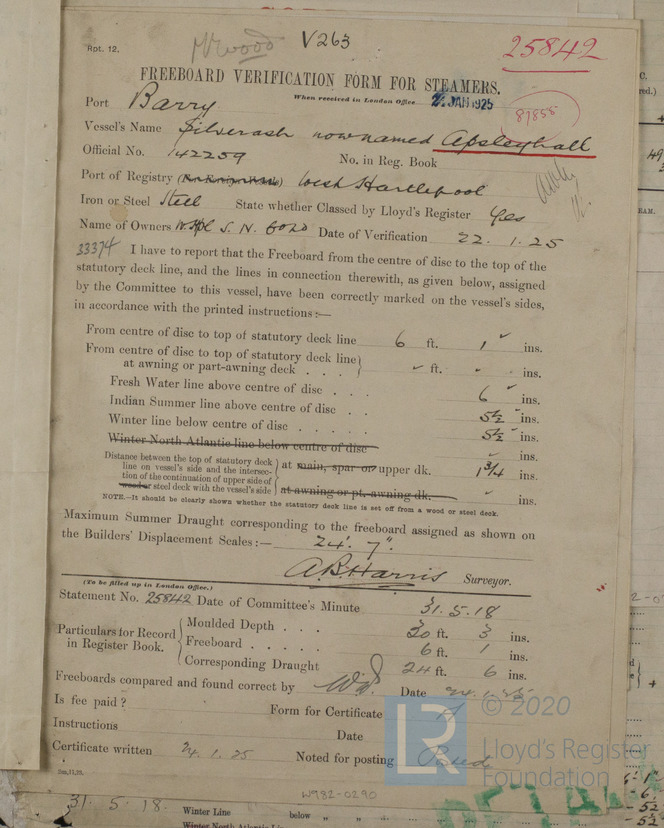 Rpt. 12.
V263
25842
FREEBOARD VERIFICATION FORM FOR STEAMERS.
When received in London Office JAN 1925
Port Barry
87855
Vessel's Name Silverash now named Apsleyhall
Official No. 142259 No. in Reg. Book
Port of Registry West Hartlepool
Iron or Steel Steel State whether Classed by Lloyd's Register Yes
Name of Owners Date of Verification 22. 1. 25
33374 I have to report that the Freeboard from the centre of disc to the top of the
statutory deck line, and the lines in connection therewith, as given below, assigned
by the Committee to this vessel, have been correctly marked on the vessel's sides,
in accordance with the printed instructions:—
From centre of disc to top of statutory deck line 6 ft. 1 ins.
From centre of disc to top of statutory deck line
at awning or part-awning deck . . . ft. ins.
Fresh Water line above centre of disc . . . 6 ins.
Indian Summer line above centre of disc . . 5½ ins.
Winter line below centre of disc . . . . . 5½ ins.
Winter North Atlantic line below centre of disc ins.
Distance between the top of statutory deck
line on vessel's side and the intersec-
tion of the continuation of upper side of
wood or steel deck with the vessel's side
at main, spar or upper dk. 1 3/4 ins.
at awning or pt. awning dk. ins.
NOTE.—It should be clearly shown whether the statutory deck line is set off from a wood or steel deck.
Maximum Summer Draught corresponding to the freeboard assigned as shown on
the Builders' Displacement Scales:— 24'. 7".
A B Harris Surveyor.
(To be filled up in London Office.)
Statement No. 25842 Date of Committee's Minute 31. 5. 18
Particulars for Record
in Register Book.
Moulded Depth . . . 30 ft. 3 ins.
Freeboard . . . . . 6 ft. 1 ins.
Corresponding Draught 24 ft. 6 ins.
Freeboards compared and found correct by Date 24. 1. 25
Is fee paid? Form for Certificate A
Instructions Date
Certificate written 24. 1. 25 Noted for posting Posted
W982-0290
31. 5. 18. Winter Line below " "
Winter North Atlantic Line
LR © 2020
Lloyd's Register
Foundation